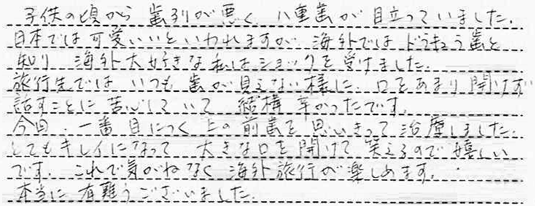 子供の頃から歯列が悪く、八重歯が目立っていました。
日本では可愛いいといわれますが、海外ではドラキュラ歯と
知り、海外大好きな私はショックを受けました。
旅行先では、いつも歯が見えない様に、口をあまり開けず
話すことに苦心していて、結構辛かったです。
今回、一番目につく上の前歯を思いきって治療しました。
とてもキレイになって、大きな口を開けて笑えるので嬉しい
です。これで気がねなく海外旅行が楽しめます。
本当に有難うございました。